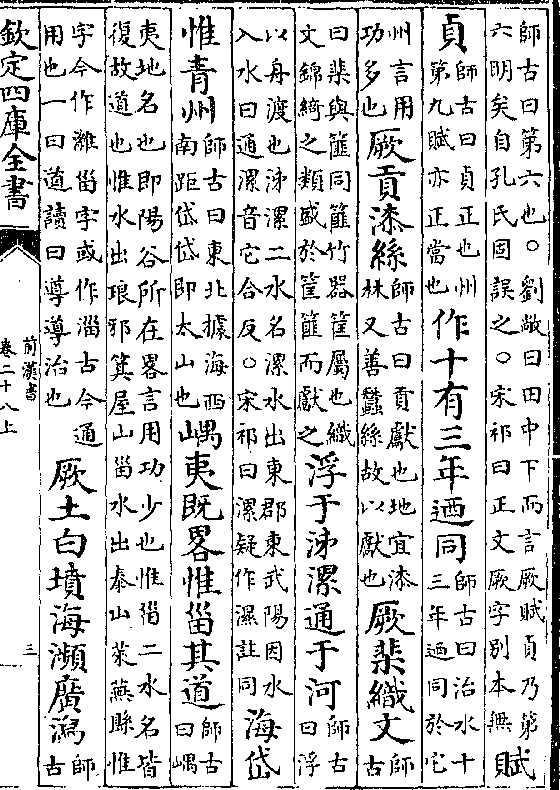 師古曰第六也○劉敞曰田中下而言厥賦貞乃第
六明矣自孔氏固誤之○宋祁曰正文厥字别本無
賦
貞
師古曰貞正也州
第九賦亦正當也
作十有三年迺同
師古曰治水十
三年迺同於它
州言用
功多也
厥貢漆絲
師古曰貢獻也地宜漆
林又善蠶絲故以獻也
厥棐織文
師
古
曰棐與篚同篚竹器筐屬也織
文錦綺之類盛於筐篚而獻之
浮于泲漯通于河
師古
曰浮
以舟渡也泲漯二水名漯水出東郡東武陽因水
入水曰通漯音它合反○宋祁曰漯疑作濕註同
海岱
惟青州
師古曰東北據海西
南距岱岱即太山也
嵎夷既畧惟甾其道
師古
曰嵎
夷地名也即陽谷所在畧言用功少也惟甾二水名皆
復故道也惟水出琅邪箕屋山甾水出泰山萊蕪縣惟
字今作濰甾字或作淄古今通
用也一曰道讀曰導導治也
厥土白墳海瀕廣潟
師
古
欽定四庫全書
前漢書
卷二十八上
三